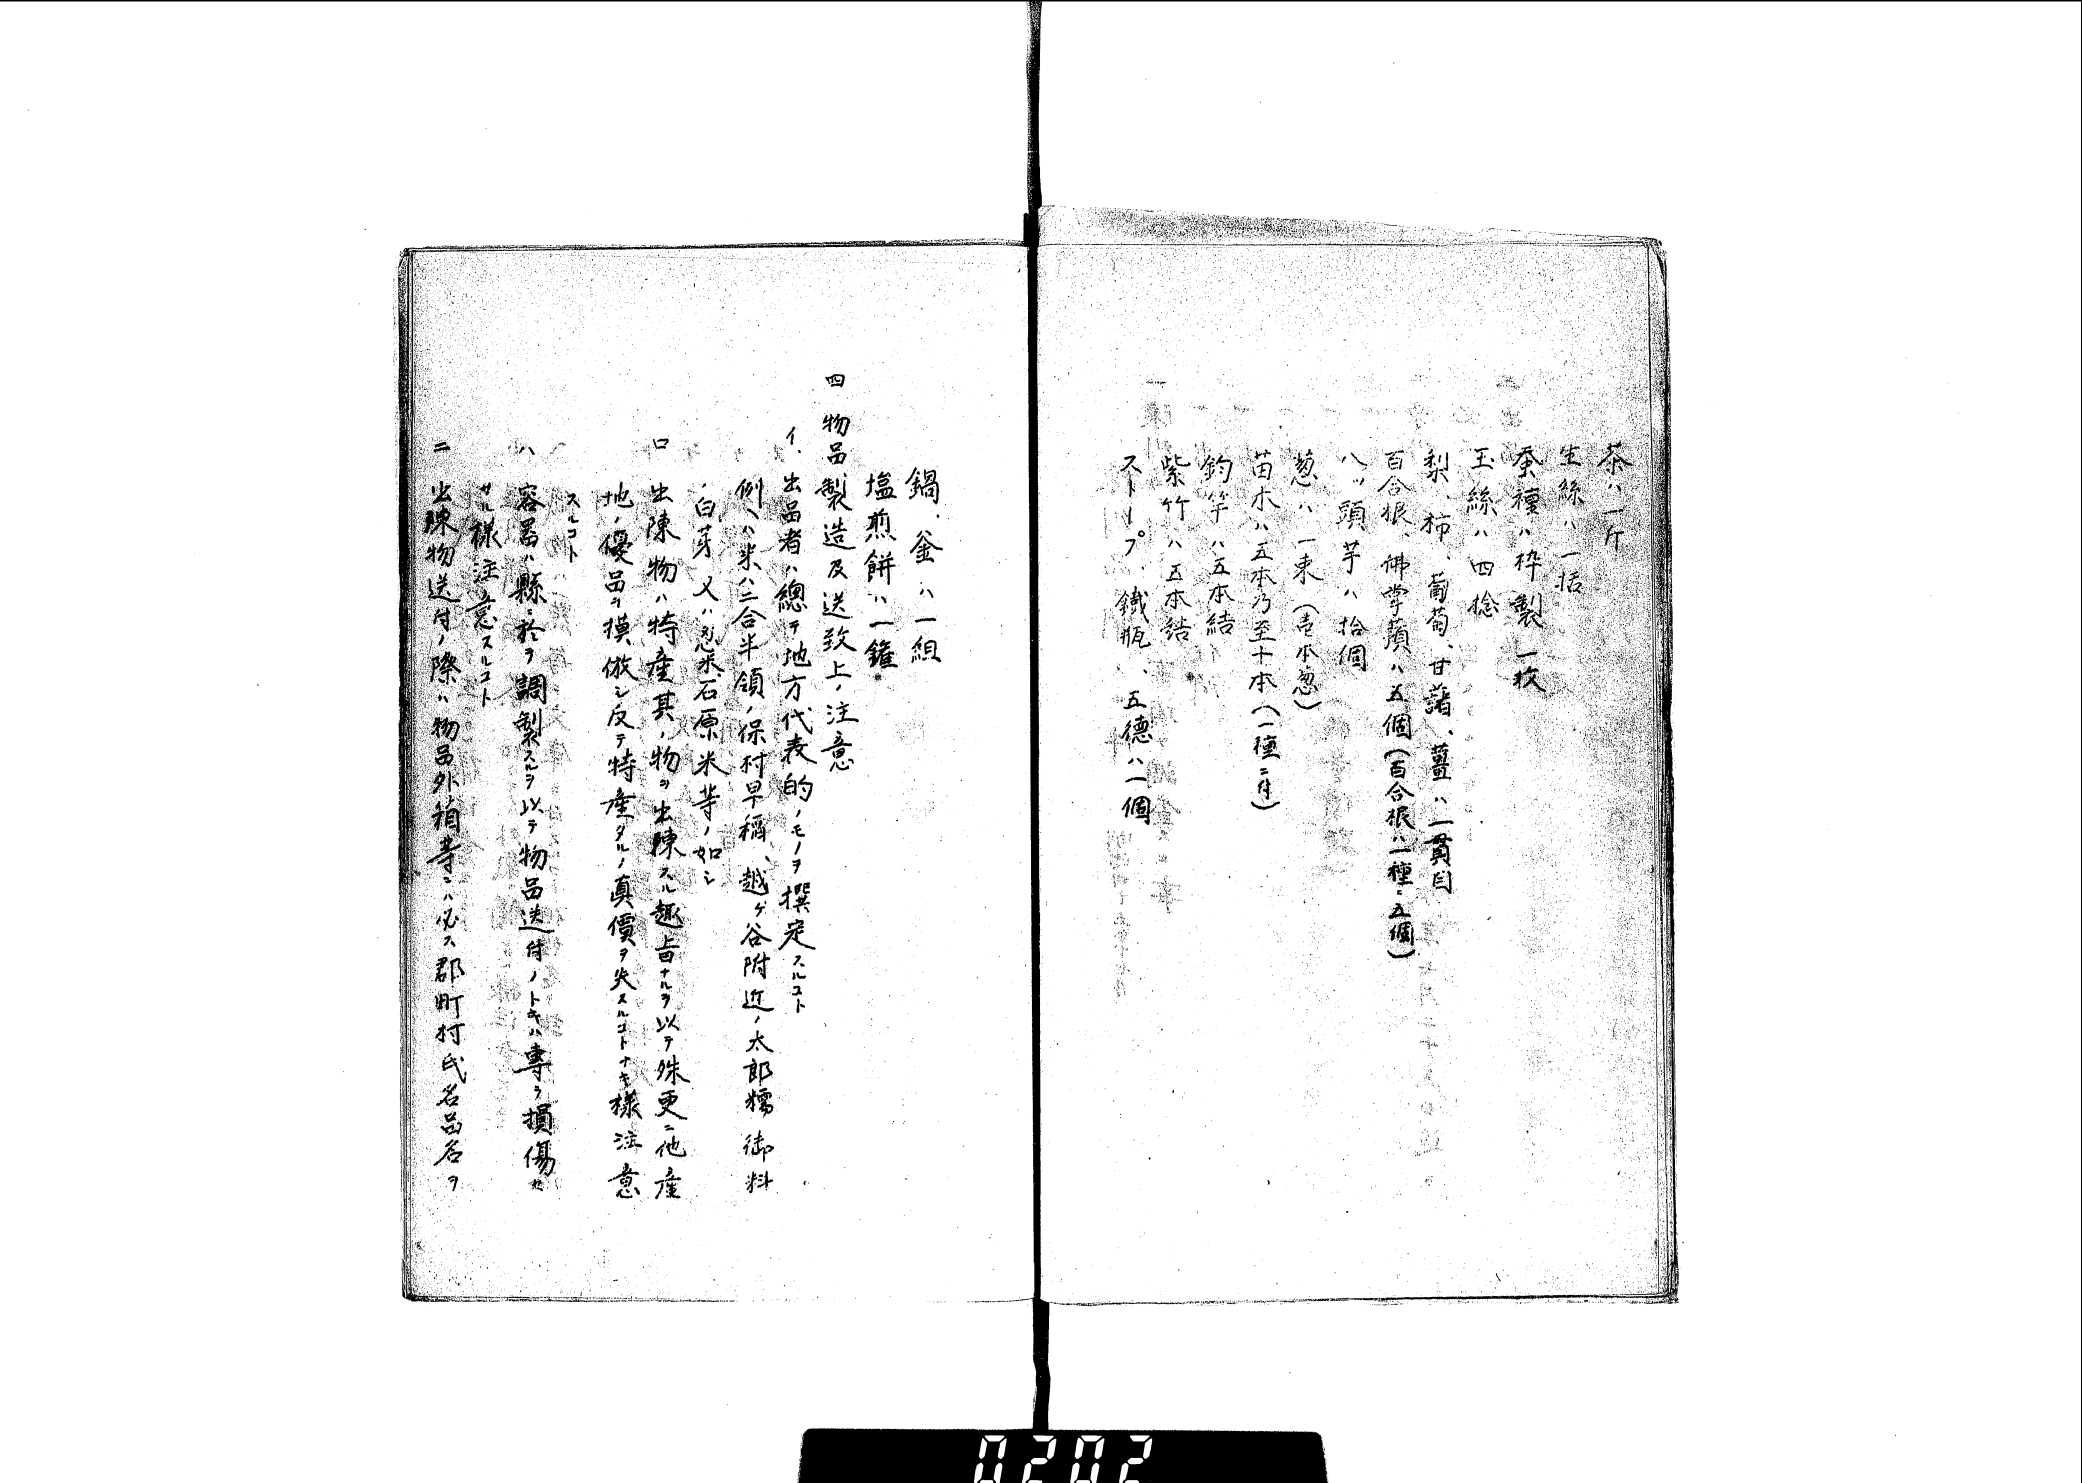 茶ハ一斤
生絲ハ一括
蚕種ハ枠製一枚
玉絲ハ四捻
梨、柿、葡萄、甘藷、薑ハ一貫目
百合根、佛掌藷ハ五個(百合根ハ一種ニ五個)
八ッ頭芋ハ拾個
葱ハ一束(壱本葱)
苗木ハ五本乃至十本(一種ニ付)
釣竿ハ五本結
紫竹ハ五本結
ストーブ、鐵瓶、五德ハ一個
鍋、釜ハ一組
塩煎餅ハ一鑵
四 物品製造及送致上ノ注意
イ、出品者ハ總テ地方代表的ノモノヲ撰定スルコト
例ヘハ米ハ二合半領ノ保村早稻、越ヶ谷附近ノ太郎糯御料
ノ白芽又ハ忍米石原米等ノ如シ
ロ 出陳物ハ特產其ノ物ヲ出陳スル趣旨ナルヲ以テ殊更ニ他產
地ノ優品ヲ摸倣シ反テ特產タルノ真價ヲ失スルコトナキ樣注意
スルコト
ハ 容器ハ縣ニ於テ調製スルヲ以テ物品送付ノトキハ專ラ損傷セ
サル樣注意スルコト
ニ 出陳物送付ノ際ハ物品外箱等ニハ必ス郡町村氏名品名ヲ
0202